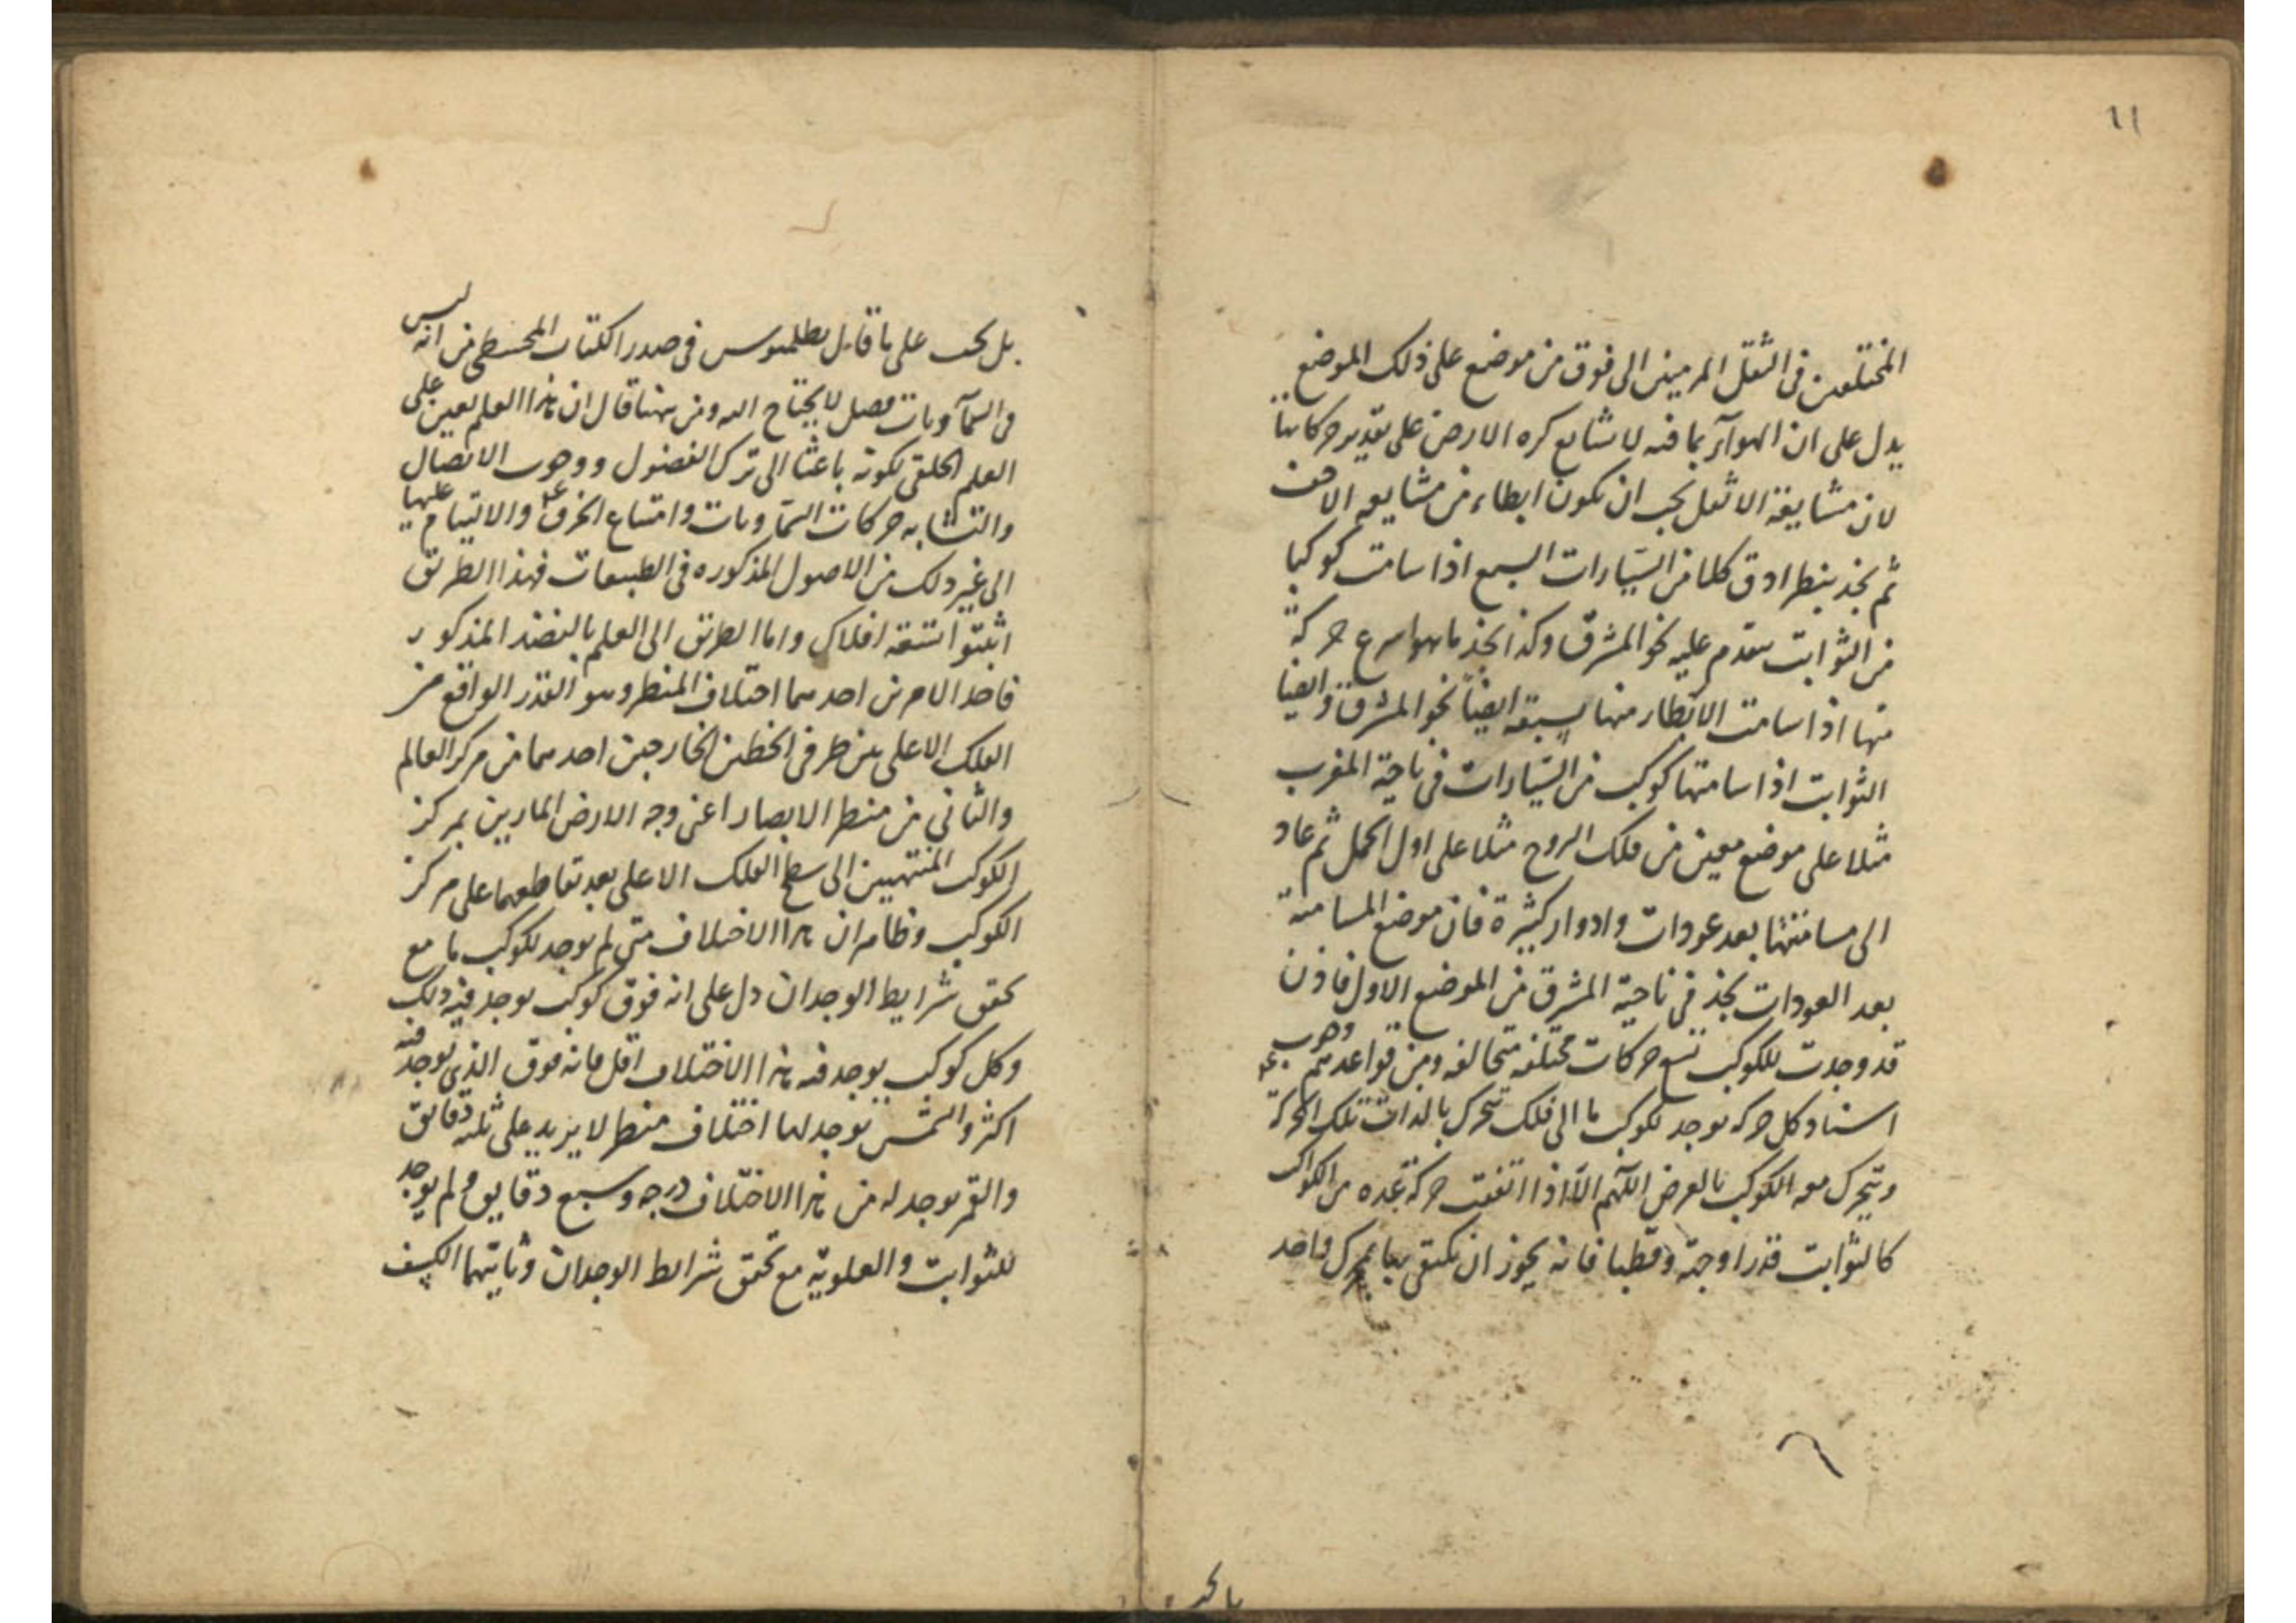 ١١
المختلفين في الثقل المرميين الى فوق من موضع على ذلك الموضع
يدل على ان الهوآء بما فيه لا يشايع كره الارض على تقدير حركاتها
لان مشايعة الاثقل يجب ان يكون ابطاء من مشايعه الاخف
ثم نجد بنظر ادق كلا من السيارات السبع اذا سامت كوكبا
من الثوابت يتقدم عليه نحو المشرق وكذا نجد ما هو اسرع حركة
منها اذا سامت الابطاء منها يسبقه ايضاً نحو المشرق وايضا
الثوابت اذا سامتها كوكب من السيارات في ناحية المغرب
مثلا على موضع معين من فلك البروج مثلا على اول الحمل ثم عاد
الى مسامتتها بعد عودات وادوار كثيرة فان موضع المسامتة
بعد العودات نجد في ناحية المشرق من الموضع الاول فاذن
قد وجدت للكوكب تسع حركات مختلفه متخالفه ومن قواعدهم وجوب
اسناد كل حركه يوجد لكوكب ما الى فلك يتحرك بالذات تلك الحركة
ويتحرك معه الكوكب بالعرض اللهم الّا اذا اتفقت حركة عده من الكواكب
كالثوابت قدرا وجهة وقطبا فانه يجوز ان يكتفى بها بمحرك واحد
بل يجب على ما قابل بطلميوس في صدر الكتاب المجسطي من انه ليس
في السمآويات فصل لا يحتاج اليه ومن هنا قال ان هذا العلم يعين على
العلم الخلقي لكونه باعثا الى ترك الفضول ووجوب الاتصال
والتشابه حركات السماويات وامتناع الخرق والالتيام عليها
الى غير ذلك من الاصول المذكوره في الطبيعيات فهذا الطريق
اثبتوا تسعة افلاك واما الطريق الى العلم بالنضد المذكور
فاحد الامرين احدهما اختلاف المنظر وهو القدر الواقع من
الفلك الاعلى بين طرفي الخطين الخارجين احدهما من مركز العالم
والثاني من منظر الابصار اعني وجه الارض المارين بمركز
الكوكب المنتهيين الى سطح الفلك الاعلى بعد تقاطعهما على مركز
الكوكب وظاهر ان هذا الاختلاف متى لم يوجد لكوكب ما مع
تحقق شرايط الوجدان دل على انه فوق كوكب يوجد فيه ذلك
وكل كوكب يوجد فيه هذا الاختلاف اقل فانه فوق الذي يوجد فيه
اكثر والشمس يوجد لها اختلاف منظر لا يزيد على ثلثه دقايق
والقمر يوجد له من هذا الاختلاف درجه وسبع دقايق ولم يوجد
للثوابت والعلوية مع تحقق شرايط الوجدان وثانيهما الكسف